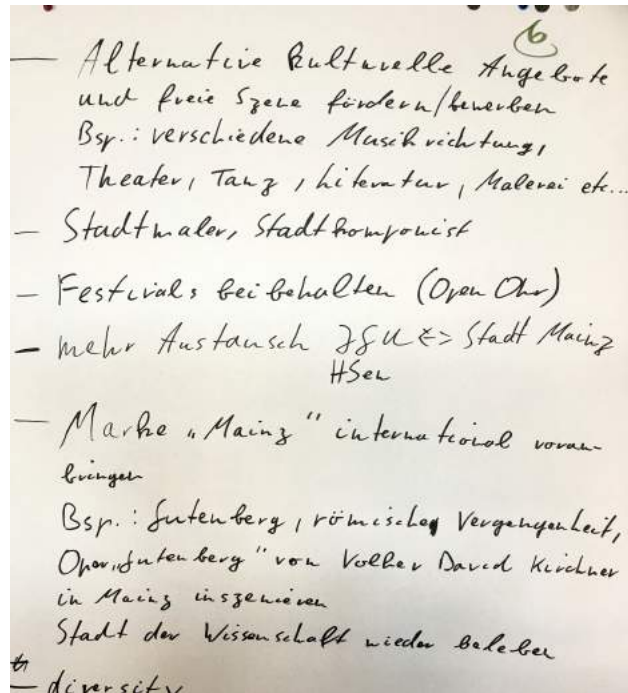 6
— Alternative kulturelle Angebote
und freie Szene fördern/bewerben
Bsp.: verschiedene Musikrichtung,
Theater, Tanz, Literatur, Malerei etc...
— Stadtmaler, Stadtkomponist
— Festivals beibehalten (Open Ohr)
— mehr Austausch JGU <-> Stadt Mainz
HSen
— Marke „Mainz" international voran-
bringen
Bsp.: Gutenberg, römische Vergangenheit,
Oper „Gutenberg" von Volker David Kirchner
in Mainz inszenieren
Stadt der Wissenschaft wieder beleben
— diversity